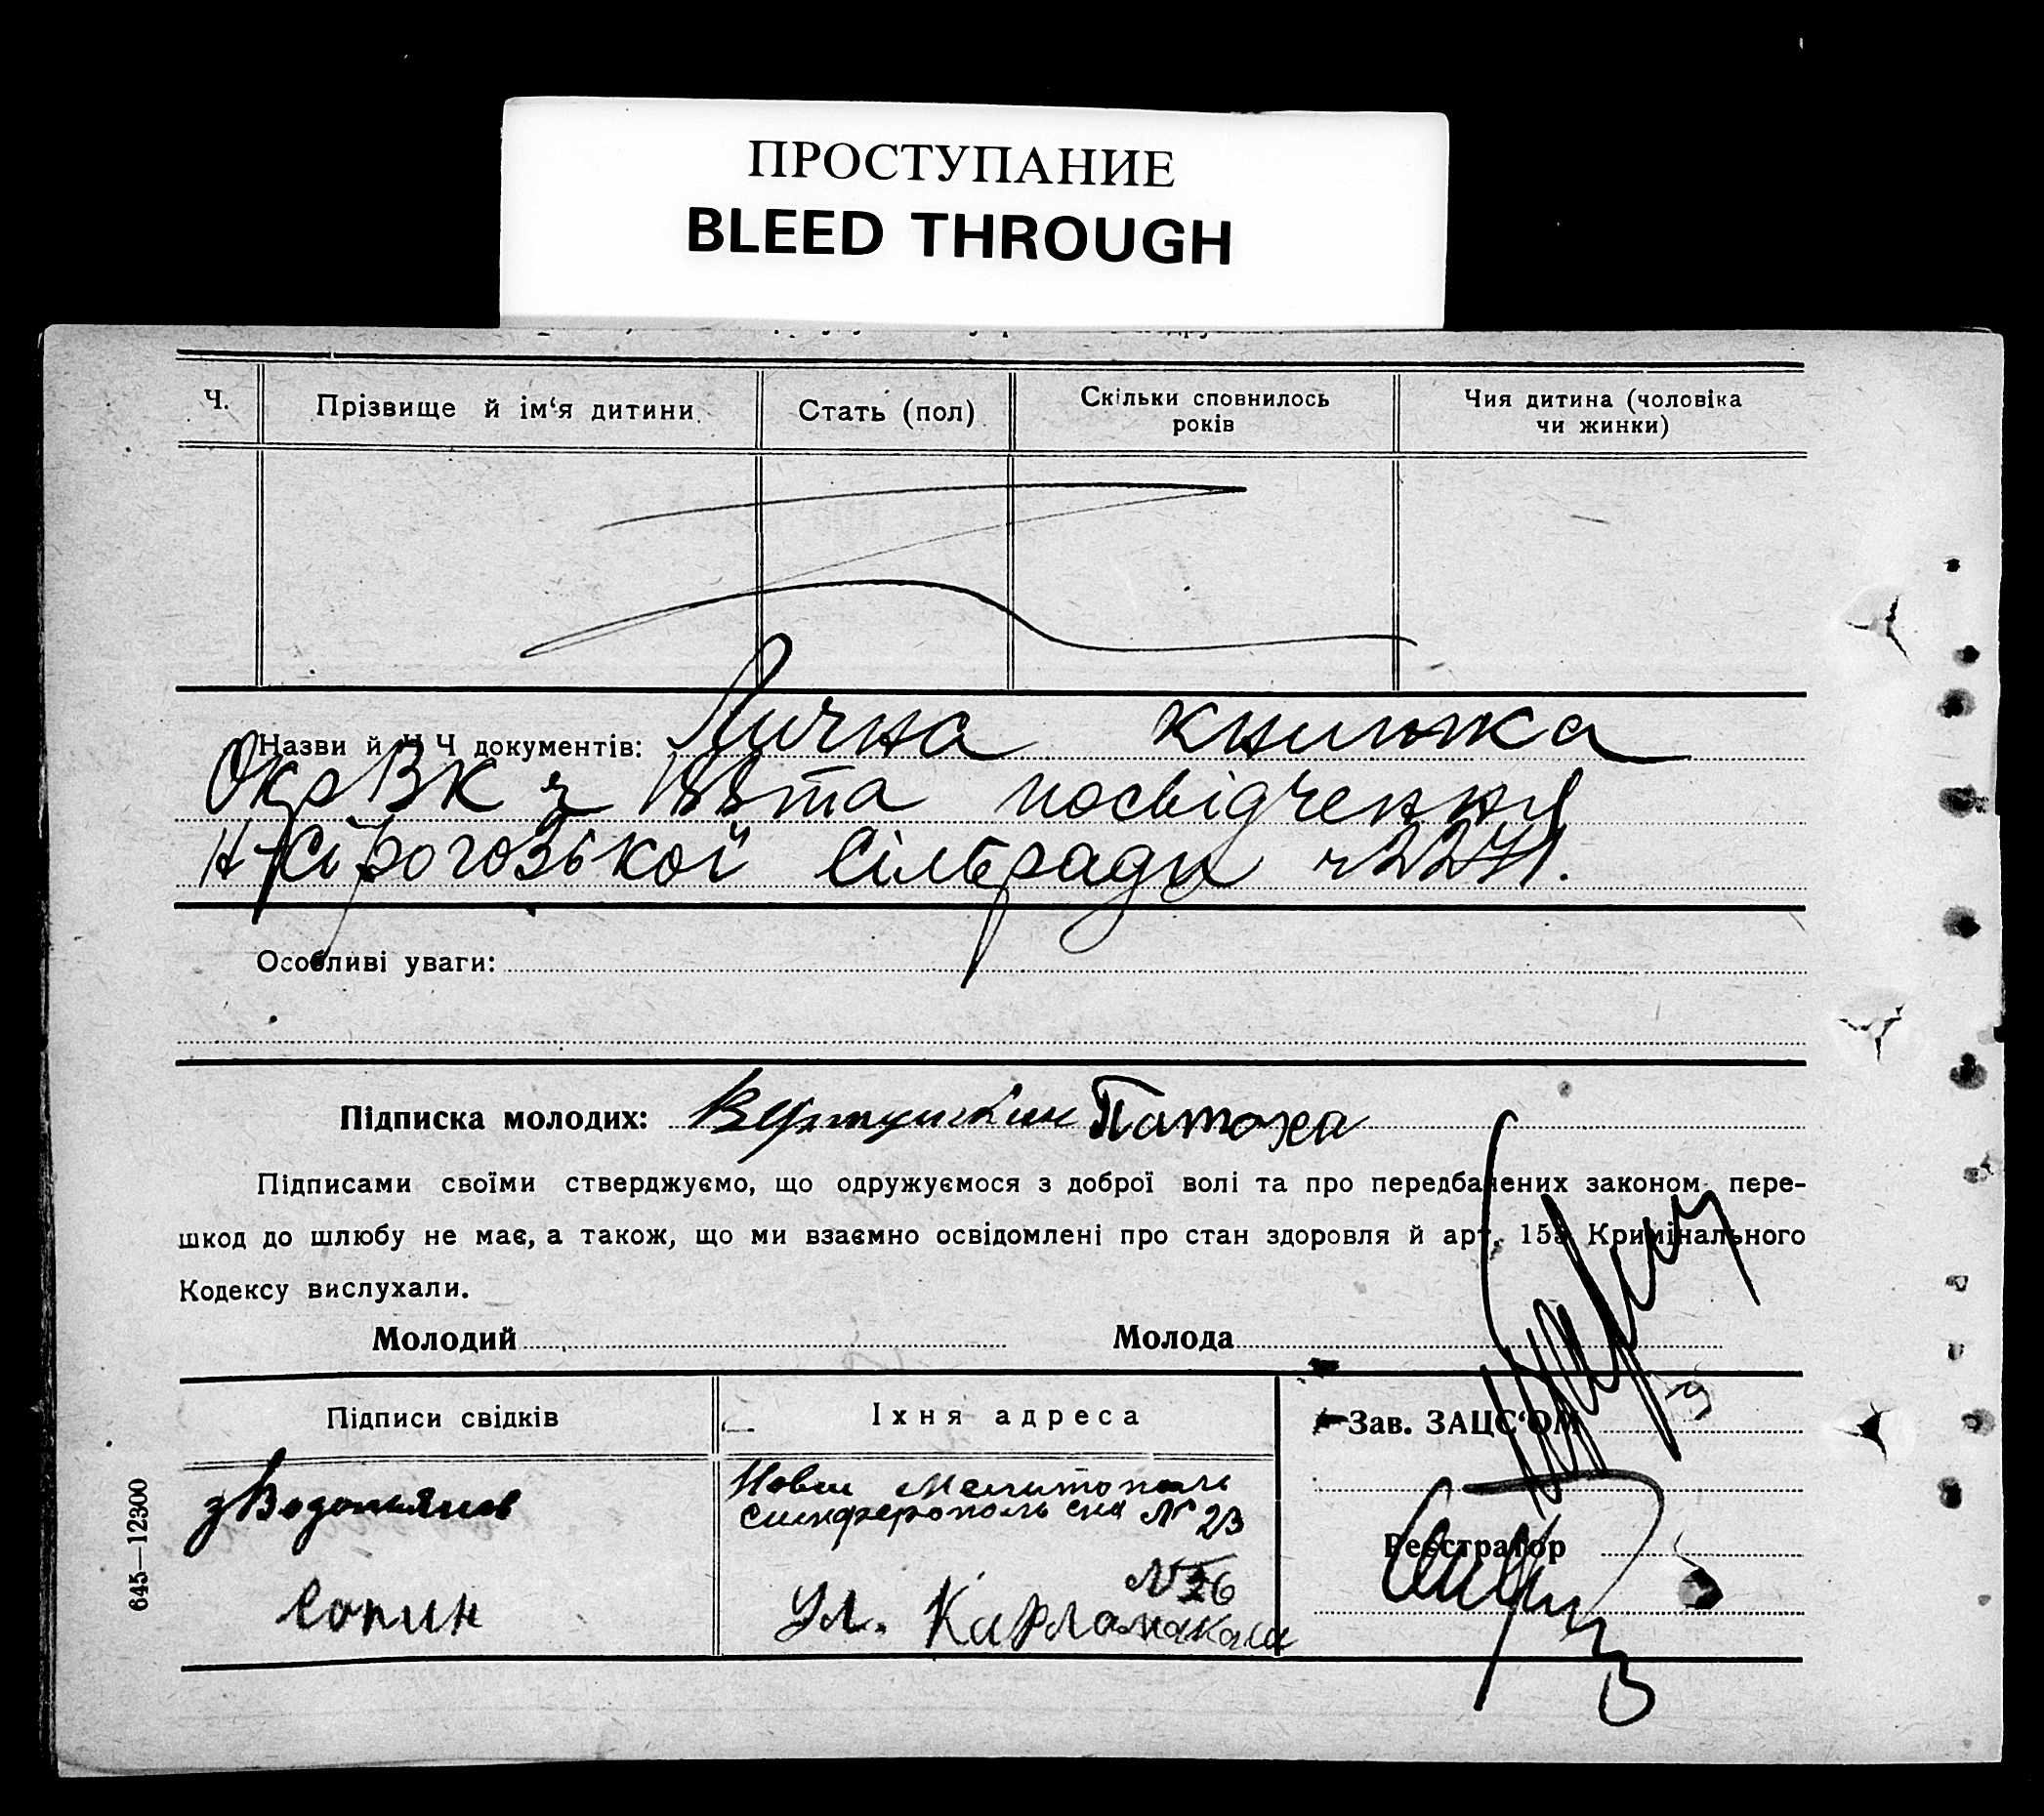 ПРОСТУПАНИЕ
BLEED THROUGH
Ч.
Прізвище й ім‘я дитини
Стать (пол)
Скільки сповнилось
років
Чия дитина (чоловіка
чи жинки)
Назви й Ч Ч документів: Лична книжка
ОкрВК ч та посвідчення
Н-Сірогозької сільради ч 2271.
Особливі уваги:
Підписка молодих: Вертушкин Патоха
Підписами своїми стверджуємо, що одружуємося з доброї волі та про передбачених законом пере-
шкод до шлюбу не має, а також, що ми взаємно освідомлені про стан здоровля й арт. 155 Кримінального
Кодексу вислухали.
Молодий
Молода
Підписи свідків
Їхня адреса
Зав. ЗАЦС‘ОМ
Водопьянов
Нови Мелитополь
симферопольска № 23
Реєстратор
Сопин
№ 26
Ул. Карла
645—12300